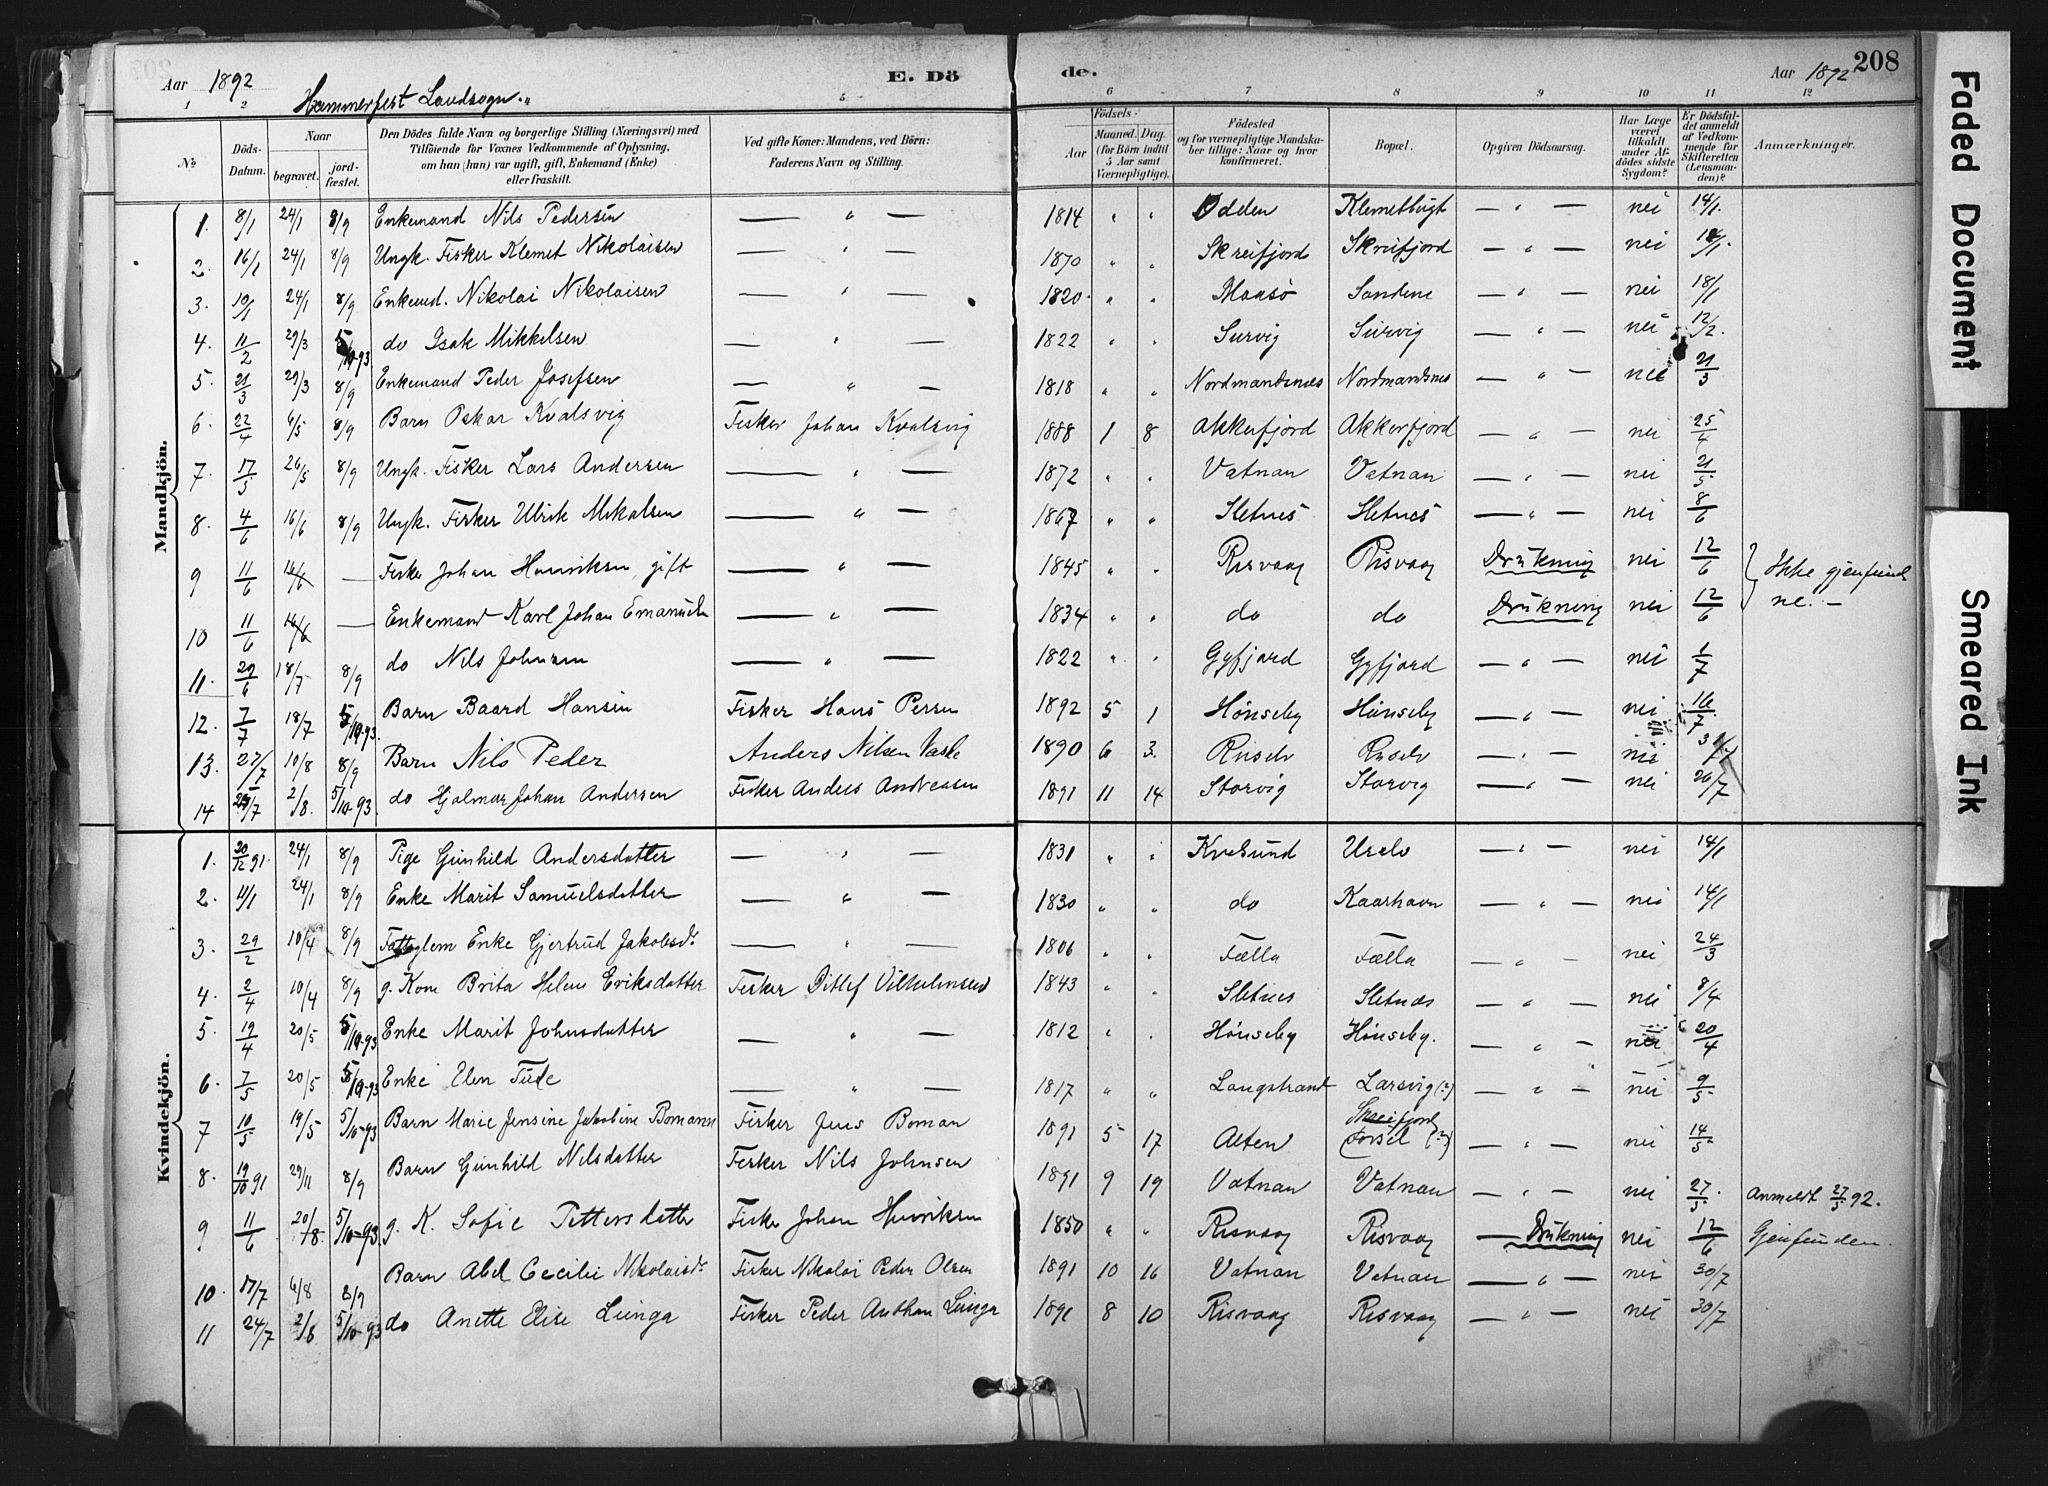 208
Aar 1892 E. Dö de. Aar 1892
Hammerfest Landsogn.
1 2 5 6 7 8 9 10 11 12
No Döds-Datum. Naar begravet. jordfæstet. Den Dödes fulde Navn og borgerlige Stilling (Næringsvei) med Tilföiende for Voxnes Vedkommende af Oplysning, om han (hun) var ugift, gift, Enkemand (Enke) eller fraskilt. Ved gifte Koner: Mandens, ved Börn: Faderens Navn og Stilling. Födsels- Aar Maaned. Dag. (for Börn indtil 5 Aar samt Værnepligtige). Födested og for værnepligtige Mandskaber tillige: Naar og hvor konfirmeret. Bopæl. Opgiven Dödsaarsag. Har Læge været tilkaldt under Afdödes sidste Sygdom? Er Dödsfaldet anmeldt af Vedkommende for Skifteretten (Lensmanden)? Anmærkninger.
Mandkjön.
1. 8/1 24/1 8/9 Enkemand Nils Pedersen — " — 1814 " " Odden Klemetbugt — " — nei 14/1.
2. 16/1 24/1 8/9 Ungk. Fisker Klemet Nikolaisen — " — 1870 " " Skreifjord Skreifjord — " — nei 18/1.
3. 10/1 24/1 8/9 Enkemd. Nikolai Nikolaisen — " — 1820 " " Maasö Sandene — " — nei 18/1
4. 11/2 29/3 5/10-93 do Isak Mikkelsen — " — 1822 " " Survig Survig — " — nei 12/2.
5. 21/3 29/3 8/9 Enkemand Peder Josefsen — " — 1818 " " Nordmandsnes Nordmandsnes — " — nei 21/3
6. 22/4 6/5 8/9 Barn Oskar Kvalsvig Fisker Johan Kvalsvig 1888 1 8 Akkerfjord Akkerfjord — " — nei 25/4
7. 17/5 26/5 8/9 Ungk. Fisker Lars Andersen — " — 1872 " " Vatnan Vatnan — " — nei 21/5
8. 4/6 16/6 8/9 Ungk. Fisker Ulrik Mikalsen — " — 1867 " " Sletnes Sletnes — " — nei 8/6
9 11/6 16/6 — Fisker Johan Henriksen gift — " — 1845 " " Risvaag Risvaag Drukning nei 12/6 Ikke gjenfund
10 11/6 16/6 — Enkemand Karl Johan Emanuels — " — 1834 " " do do Drukning nei 12/6 ne. —
11. 29/6 18/7 8/9 do Nils Johnsen — " — 1822 " " Gyfjord Gyfjord — " — nei 1/7
12. 7/7 18/7 5/10-93. Barn Baard Hansen Fisker Hans Persen 1892 5 1 Hönseby Hönseby — " — nei 16/7
13. 27/7 10/8 8/9 Barn Nils Peder Anders Nilsen 1890 6 3. Ruselv Ruselv — " — nei 31/7
14 /7 2/8. 5/10-93 do Hjalmar Johan Andersen Fisker Anders Andreasen 1891 11 14 Storvig Storvig — " — nei 26/7
Kvindekjön.
1. 20/12 91 24/1 8/9 Pige Gunhild Andersdatter — " — 1831 " " Kvalsund — " — nei 14/1
2. 11/1 24/1 8/9 Enke Marit Samuelsdatter — " — 1830 " " do Kaarhavn — " — nei 14/1
3. 29/2 10/4 8/9 Fattiglem Enke Gjertrud Jakobsdr — " — 1806 " " Fælla Fælla — " — nei 24/3
4. 2/4 10/4 8/9 g. Kone Brita Helene Eriksdatter Fisker Ditlef Vilhelmsen 1843 " " Sletnes Sletnes — " — nei 8/4
5. 19/4 20/5 5/10-93 Enke Marit Johnsdatter — " — 1812 " " Hönseby Hönseby. — " — nei 20/4
6. 7/5 20/5 5/10-93 Enke Elen — " — 1817 " " Langstrand Larsvig (?) — " — nei 9/5
7 10/5 19/5 5/10-93 Barn Marie Jensine Jakobine Bomann Fisker Jens Boman 1891 5 17 Alten Skreifjord Forsøl (?) — " — nei 14/5
8. 19/10 91 29/11 8/9 Barn Gunhild Nilsdatter Fisker Nils Johnsen 1891 9 19 Vatnan Vatnan — " — nei 27/5. Anmeldt 27/5 92.
9 11/6 20/8. 5/10-93 g. K. Sofie Pettersdatter Fisker Johan Henriksen 1850 " " Risvaag Risvaag — Drukning nei 12/6 Gjenfunden.
10. 17/7 6/8 8/9 Barn Abel Cecilie Nikolaisdr Fisker Nikolai Peder Olsen 1891 10 16 Vatnan Vatnan — " — nei 30/7
11 24/7 2/8 5/10-93 do Anette Elise Lunga Fisker Peder Anthon Lunga 1891 8 10 Risvaag Risvaag — " — nei 30/7
Faded Document
Smeared Ink